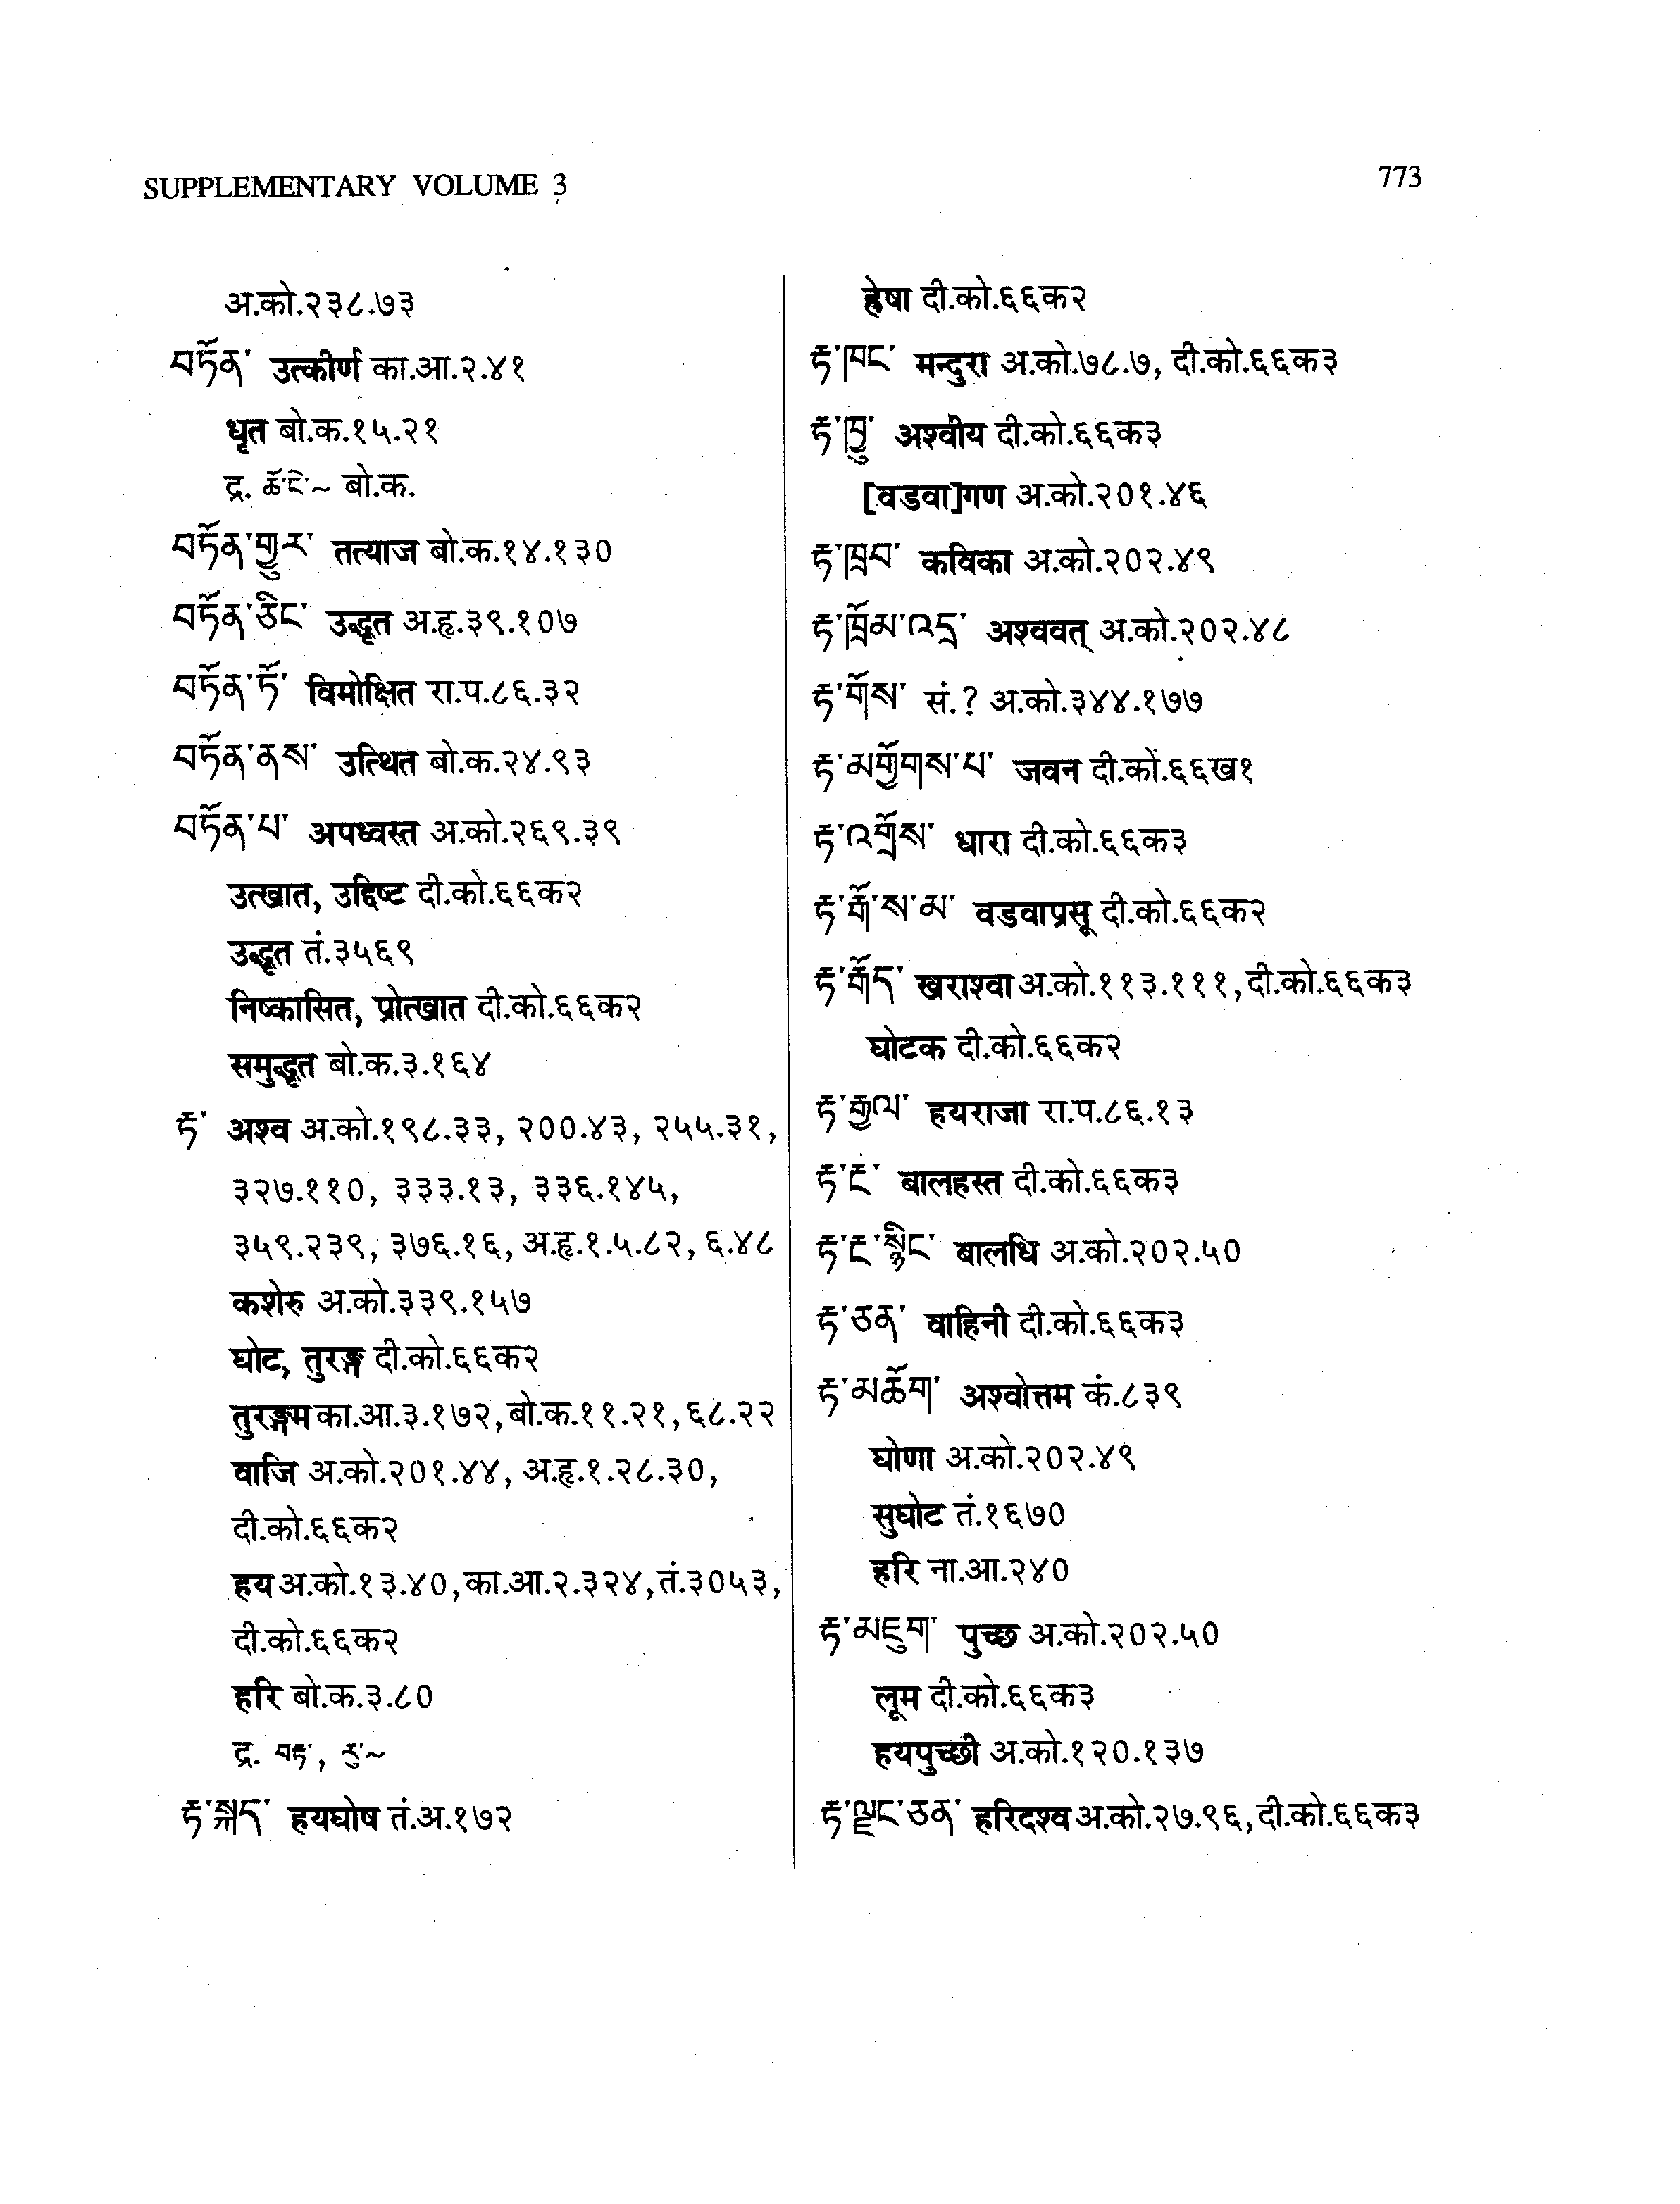 SUPPLEMENTARY VOLUME 3
773
अ.को.२३८.७३
བཏོན་ उत्कीर्ण का.आ.२.४१
धृत बो.क.१५.२१
द्र. ཚོང་~ बो.क.
བཏོན་གྱུར་ तत्याज बो.क.१४.१३०
བཏོན་ཅིང་ उद्धृत अ.हृ.३९.१०७
བཏོན་ཏོ་ विमोक्षित रा.प.८६.३२
བཏོན་ནས་ उत्थित बो.क.२४.९३
བཏོན་པ་ अपध्वस्त अ.को.२६९.३९
उत्खात, उद्दिष्ट दी.को.६६क२
उद्धृत तं.३५६९
निष्कासित, प्रोत्खात दी.को.६६क२
समुद्धृत बो.क.३.१६४
རྟ་ अश्व अ.को.१९८.३३, २००.४३, २५५.३१,
३२७.११०, ३३३.१३, ३३६.१४५,
३५९.२३९, ३७६.१६, अ.हृ.१.५.८२, ६.४८
कशेरु अ.को.३३९.१५७
घोट, तुरङ्ग दी.को.६६क२
तुरङ्गम का.आ.३.१७२, बो.क.११.२१, ६८.२२
वाजि अ.को.२०१.४४, अ.हृ.१.२८.३०,
दी.को.६६क२
हय अ.को.१३.४०, का.आ.२.३२४, तं.३०५३,
दी.को.६६क२
हरि बो.क.३.८०
द्र. བརྟ་, རུ་~
རྟ་སྐད་ हयघोष तं.अ.१७२
ह्रेषा दी.को.६६क२
རྟ་ཁང་ मन्दुरा अ.को.७८.७, दी.को.६६क३
རྟ་ཁྱུ་ अश्वीय दी.को.६६क३
[वडवा]गण अ.को.२०१.४६
རྟ་ཁྲབ་ कविका अ.को.२०२.४९
རྟ་ཁྲོམ་འདྲ་ अश्ववत् अ.को.२०२.४८
རྟ་གོས་ सं.? अ.को.३४४.१७७
རྟ་མགྱོགས་པ་ जवन दी.को.६६ख१
རྟ་འགྲོས་ धारा दी.को.६६क३
རྟ་རྒོ་ས་མ་ वडवाप्रसू दी.को.६६क२
རྟ་རྒོད་ खराश्वा अ.को.११३.१११, दी.को.६६क३
घोटक दी.को.६६क२
རྟ་རྒྱལ་ हयराजा रा.प.८६.१३
རྟ་རྔ་ बालहस्त दी.को.६६क३
རྟ་རྔ་སྙིང་ बालधि अ.को.२०२.५०
རྟ་ཅན་ वाहिनी दी.को.६६क३
རྟ་མཆོག་ अश्वोत्तम कं.८३९
घोणा अ.को.२०२.४९
सुघोट तं.१६७०
हरि ना.आ.२४०
རྟ་མཇུག་ पुच्छ अ.को.२०२.५०
लूम दी.को.६६क३
हयपुच्छी अ.को.१२०.१३७
རྟ་ལྗང་ཅན་ हरिदश्व अ.को.२७.९६, दी.को.६६क३